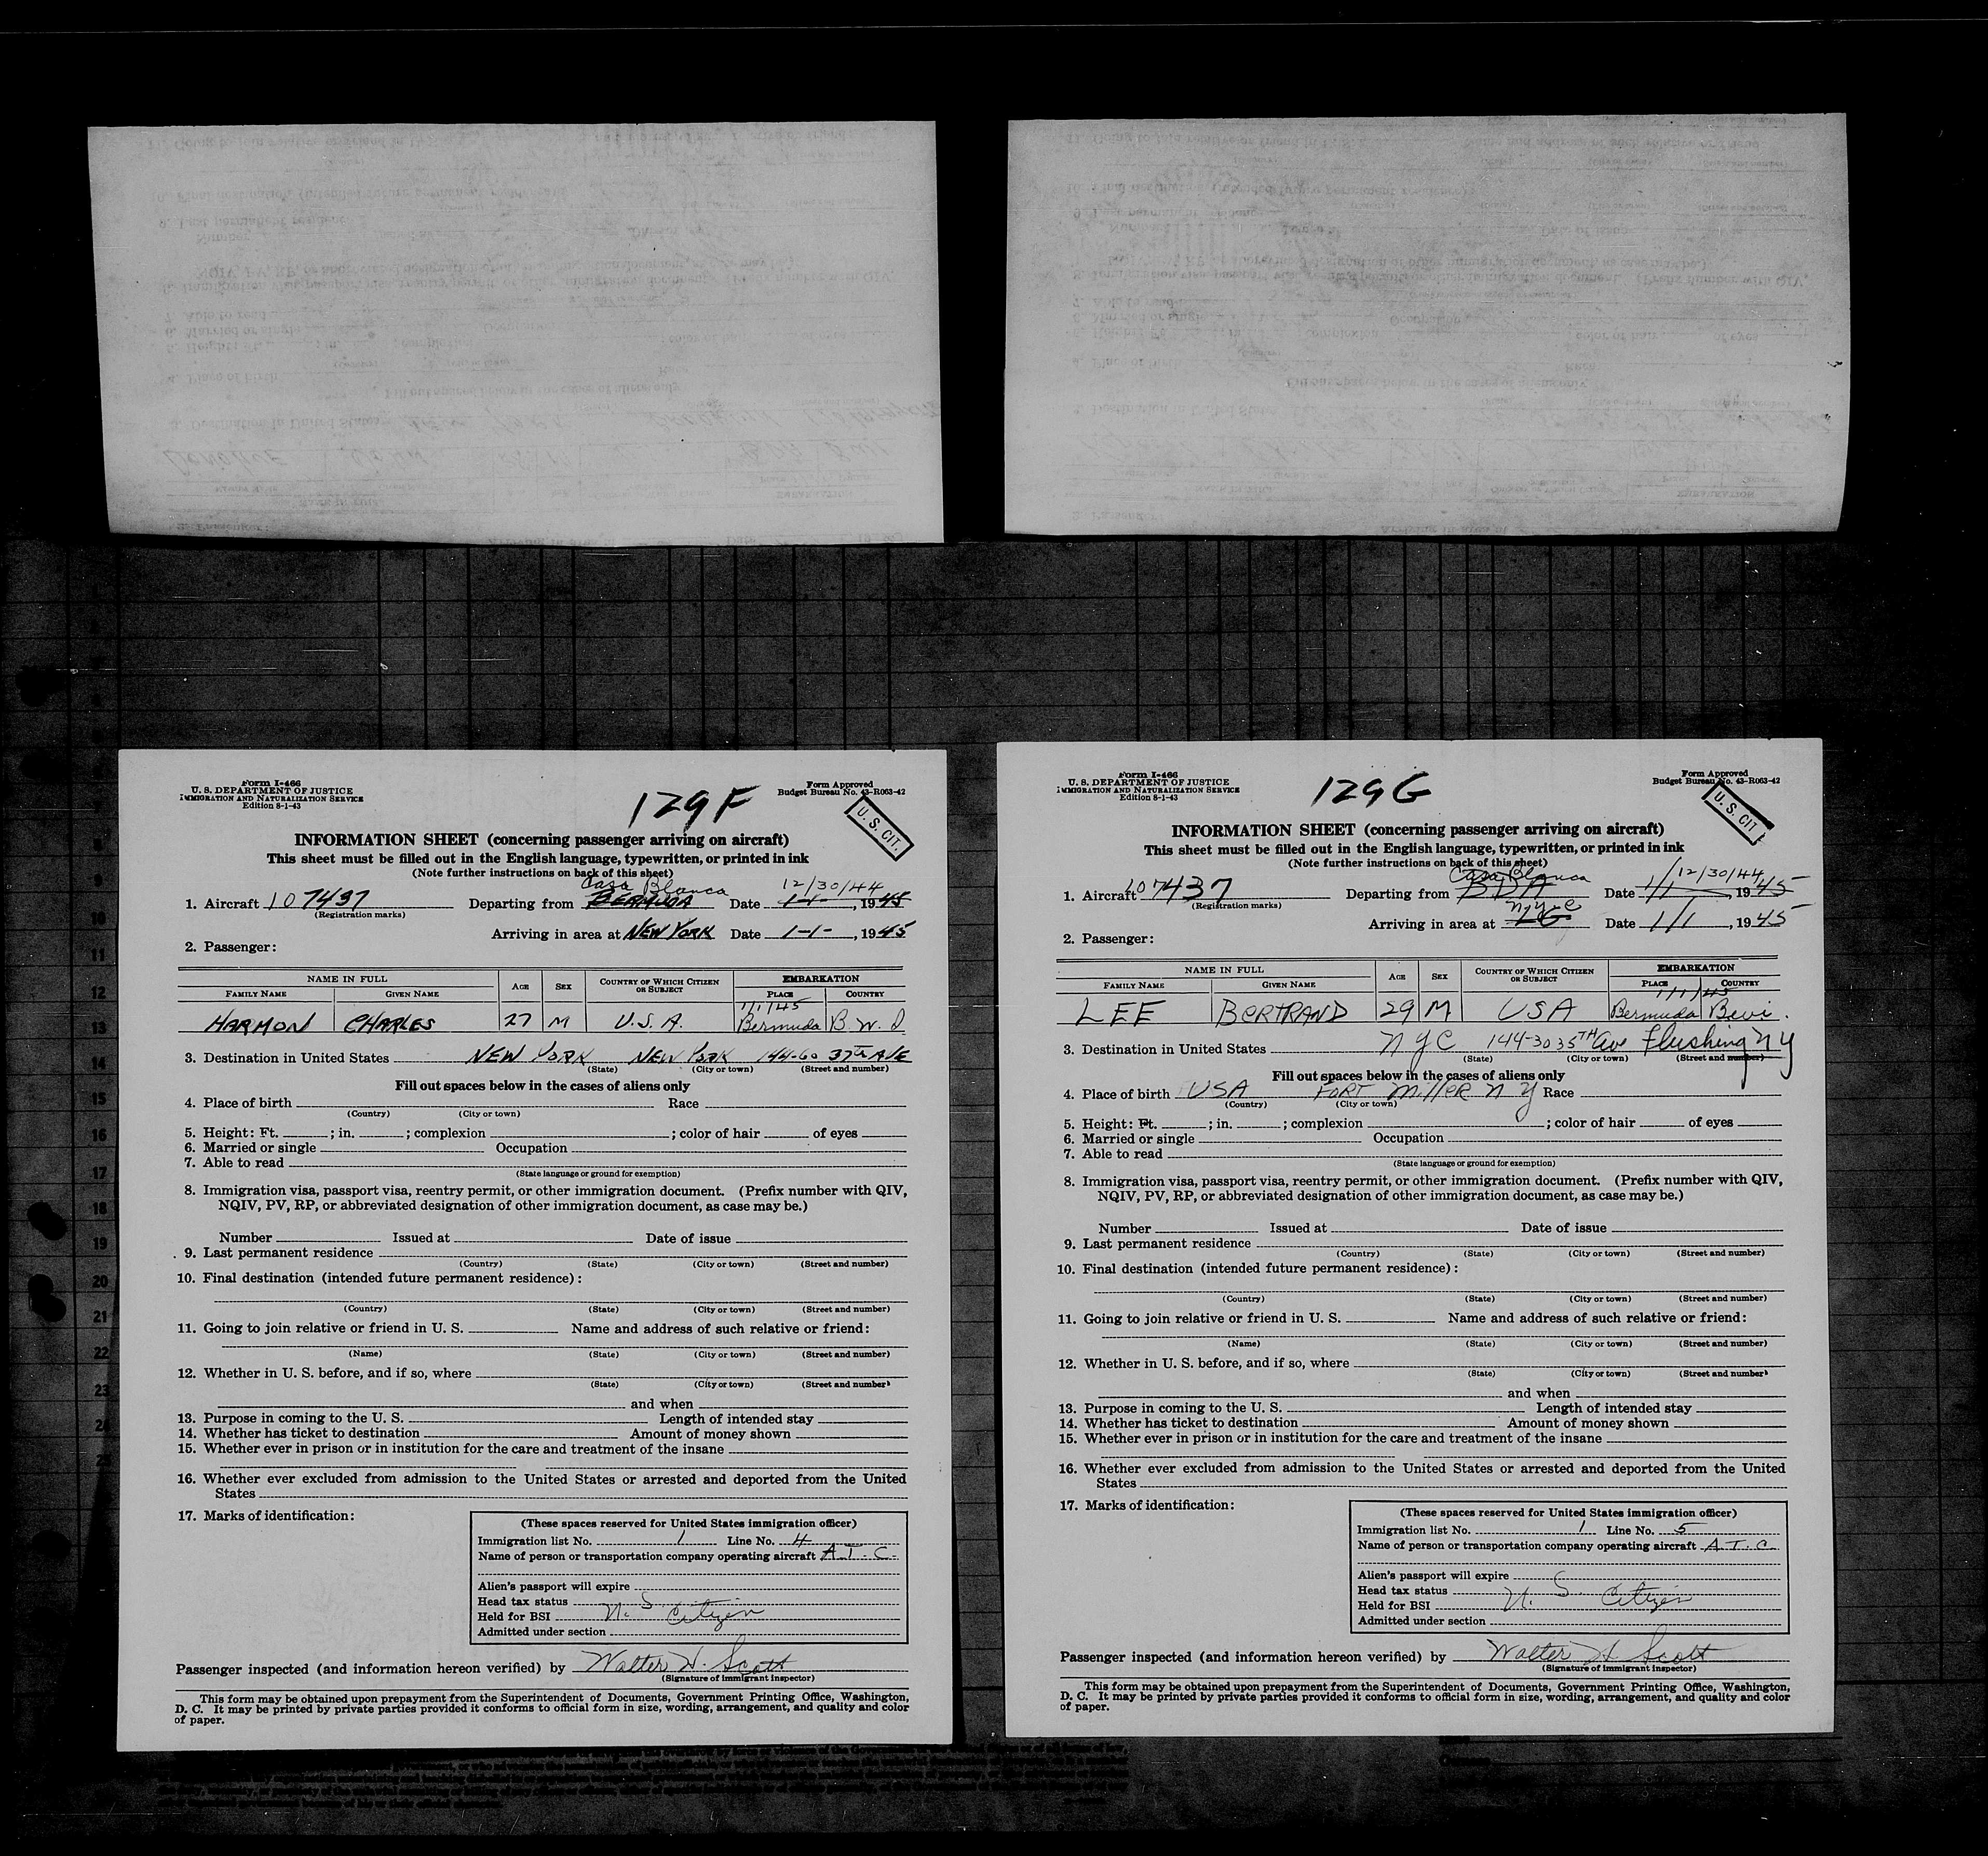 Form I-466
U. S. DEPARTMENT OF JUSTICE
IMMIGRATION AND NATURALIZATION SERVICE
Edition 8-1-43
129F
Form Approved
Budget Bureau No. 43-R063-42
U. S. CIT.
INFORMATION SHEET (concerning passenger arriving on aircraft)
This sheet must be filled out in the English language, typewritten, or printed in ink
(Note further instructions on back of this sheet)
Casa Blanca 12/30/44
1. Aircraft 107437 Departing from BERMUDA Date 1-1-, 1945
(Registration marks)
Arriving in area at NEW YORK Date 1-1-, 1945
2. Passenger:
NAME IN FULL AGE SEX COUNTRY OF WHICH CITIZEN OR SUBJECT EMBARKATION
FAMILY NAME GIVEN NAME PLACE COUNTRY
1/1/45
HARMON CHARLES 27 M U.S.A. Bermuda B.W.I
3. Destination in United States NEW YORK NEW YORK 144-60 37th AVE
(State) (City or town) (Street and number)
Fill out spaces below in the cases of aliens only
4. Place of birth Race
(Country) (City or town)
5. Height: Ft. ; in. ; complexion ; color of hair of eyes
6. Married or single Occupation
7. Able to read
(State language or ground for exemption)
8. Immigration visa, passport visa, reentry permit, or other immigration document. (Prefix number with QIV,
NQIV, PV, RP, or abbreviated designation of other immigration document, as case may be.)
Number Issued at Date of issue
9. Last permanent residence
(Country) (State) (City or town) (Street and number)
10. Final destination (intended future permanent residence):
(Country) (State) (City or town) (Street and number)
11. Going to join relative or friend in U. S. Name and address of such relative or friend:
(Name) (State) (City or town) (Street and number)
12. Whether in U. S. before, and if so, where
(State) (City or town) (Street and number)
and when
13. Purpose in coming to the U. S. Length of intended stay
14. Whether has ticket to destination Amount of money shown
15. Whether ever in prison or in institution for the care and treatment of the insane
16. Whether ever excluded from admission to the United States or arrested and deported from the United
States
17. Marks of identification:
(These spaces reserved for United States immigration officer)
Immigration list No. 1 Line No. 4
Name of person or transportation company operating aircraft A.T.C.
Alien's passport will expire
Head tax status
Held for BSI U.S. Citizen
Admitted under section
Passenger inspected (and information hereon verified) by Walter H. Scott
(Signature of immigrant inspector)
This form may be obtained upon prepayment from the Superintendent of Documents, Government Printing Office, Washington,
D. C. It may be printed by private parties provided it conforms to official form in size, wording, arrangement, and quality and color
of paper.
Form I-466
U. S. DEPARTMENT OF JUSTICE
IMMIGRATION AND NATURALIZATION SERVICE
Edition 8-1-43
129G
Form Approved
Budget Bureau No. 43-R063-42
U. S. CIT.
INFORMATION SHEET (concerning passenger arriving on aircraft)
This sheet must be filled out in the English language, typewritten, or printed in ink
(Note further instructions on back of this sheet)
Casa Blanca 12/30/44
1. Aircraft 107437 Departing from BDA Date 1/1, 1945
(Registration marks)
Arriving in area at LG Date 1/1, 1945
2. Passenger:
NAME IN FULL AGE SEX COUNTRY OF WHICH CITIZEN OR SUBJECT EMBARKATION
FAMILY NAME GIVEN NAME PLACE COUNTRY
1/1/45
LEE BERTRAND 29 M USA Bermuda Bewi.
3. Destination in United States NYC 144-30 35TH Ave Flushing NY
(State) (City or town) (Street and number)
Fill out spaces below in the cases of aliens only
4. Place of birth USA FORT MillER NY Race
(Country) (City or town)
5. Height: Ft. ; in. ; complexion ; color of hair of eyes
6. Married or single Occupation
7. Able to read
(State language or ground for exemption)
8. Immigration visa, passport visa, reentry permit, or other immigration document. (Prefix number with QIV,
NQIV, PV, RP, or abbreviated designation of other immigration document, as case may be.)
Number Issued at Date of issue
9. Last permanent residence
(Country) (State) (City or town) (Street and number)
10. Final destination (intended future permanent residence):
(Country) (State) (City or town) (Street and number)
11. Going to join relative or friend in U. S. Name and address of such relative or friend:
(Name) (State) (City or town) (Street and number)
12. Whether in U. S. before, and if so, where
(State) (City or town) (Street and number)
and when
13. Purpose in coming to the U. S. Length of intended stay
14. Whether has ticket to destination Amount of money shown
15. Whether ever in prison or in institution for the care and treatment of the insane
16. Whether ever excluded from admission to the United States or arrested and deported from the United
States
17. Marks of identification:
(These spaces reserved for United States immigration officer)
Immigration list No. 1 Line No. 5
Name of person or transportation company operating aircraft A.T.C
Alien's passport will expire
Head tax status
Held for BSI U.S. Citizen
Admitted under section
Passenger inspected (and information hereon verified) by Walter H Scott
(Signature of immigrant inspector)
This form may be obtained upon prepayment from the Superintendent of Documents, Government Printing Office, Washington,
D. C. It may be printed by private parties provided it conforms to official form in size, wording, arrangement, and quality and color
of paper.